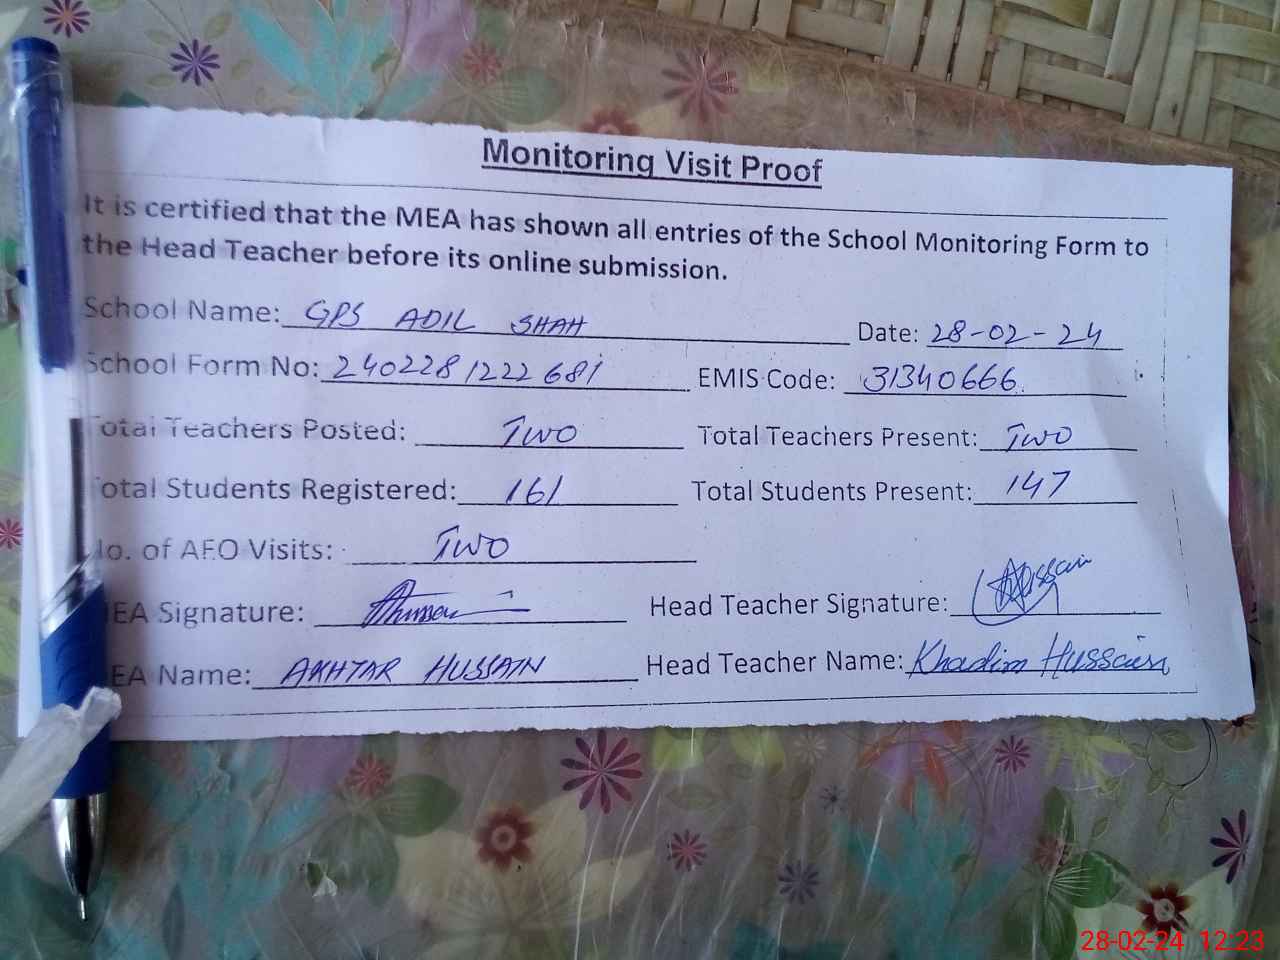 Monitoring Visit Proof
It is certified that the MEA has shown all entries of the School Monitoring Form to
the Head Teacher before its online submission.
School Name: GPS ADIL SHAH Date: 28-02-24
School Form No: 2402281222681 EMIS Code: 31340666
Total Teachers Posted: TWO Total Teachers Present: TWO
Total Students Registered: 161 Total Students Present: 147
No. of AEO Visits: TWO
MEA Signature: Head Teacher Signature: Hussain
MEA Name: AKHTAR HUSSAIN Head Teacher Name: Khadim Hussain
28-02-24 12:23